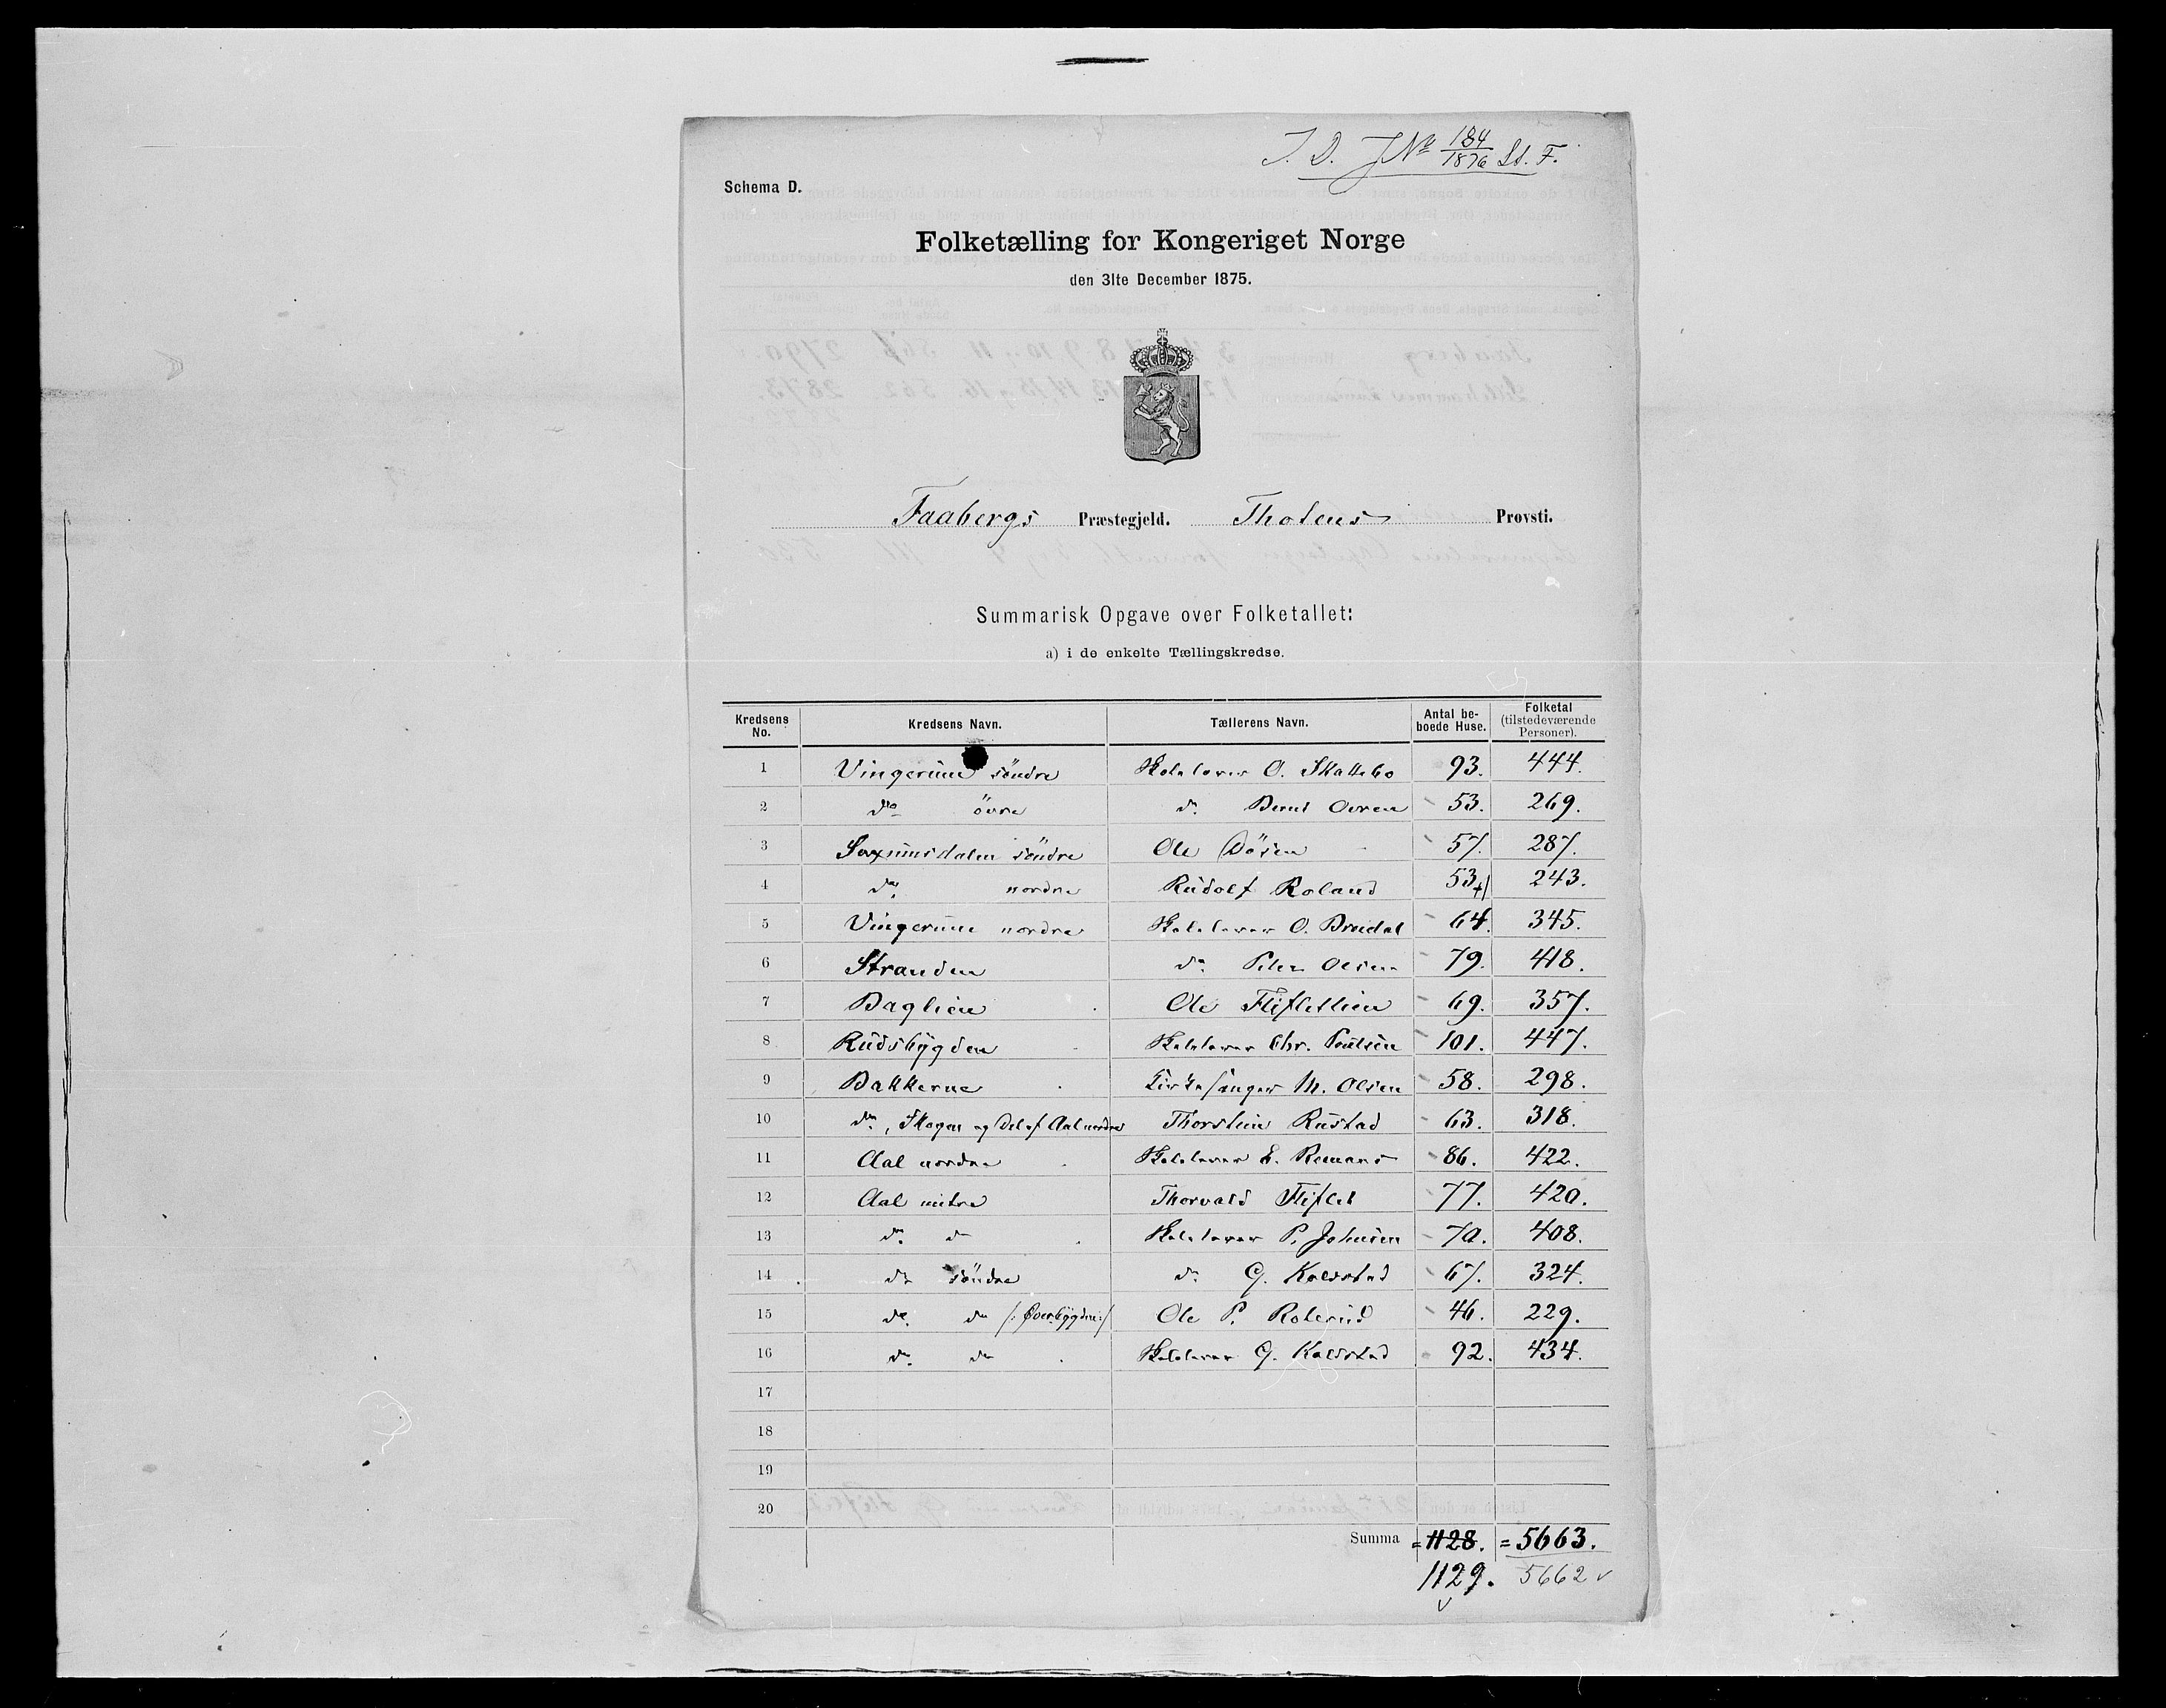 I. D. JNo 184/1876 St. F.
Schema D.
Folketælling for Kongeriget Norge
den 31te December 1875.
Faabergs Præstegjeld. Thotens Provsti.
Summarisk Opgave over Folketallet:
a) i de enkelte Tællingskredse.
Kredsens No. Kredsens Navn. Tællerens Navn. Antal beboede Huse. Folketal (tilstedeværende Personer).
1 Vingerum söndre Skolelærer O. Skattebo 93. 444.
2 do övre do Bernt Owren 53. 269.
3 Saxumsdalen söndre Ole Dösen 57. 287.
4 do nordre Rudolf Roland 53 +1 243.
5 Vingerum nordre Skolelærer O. Bredal 64. 345.
6 Stranden do Peter Olsen 79. 418.
7 Baglien Ole Flifletlien 69. 357.
8 Rudsbygden Skolelærer Chr. Poulsen 101. 447.
9 Bakkerne Kirkesanger M. Olsen 58. 298.
10 do, Skogen og Del af Aal nordre Thorstein Rustad 63. 318.
11 Aal nordre Skolelærer E. 86. 422.
12 Aal mitre Thorvald Fliflet 77. 420.
13 do do Skolelærer P. Johnsen 70. 408.
14 do söndre do G. Kolstad 67. 324.
15 do do /: Øverbygden :/ Ole P. Rolerud 46. 229.
16 do do Skolelærer G. Kolstad 92. 434.
17
18
19
20
Summa = 1128. = 5663.
1129. 5662 v
v